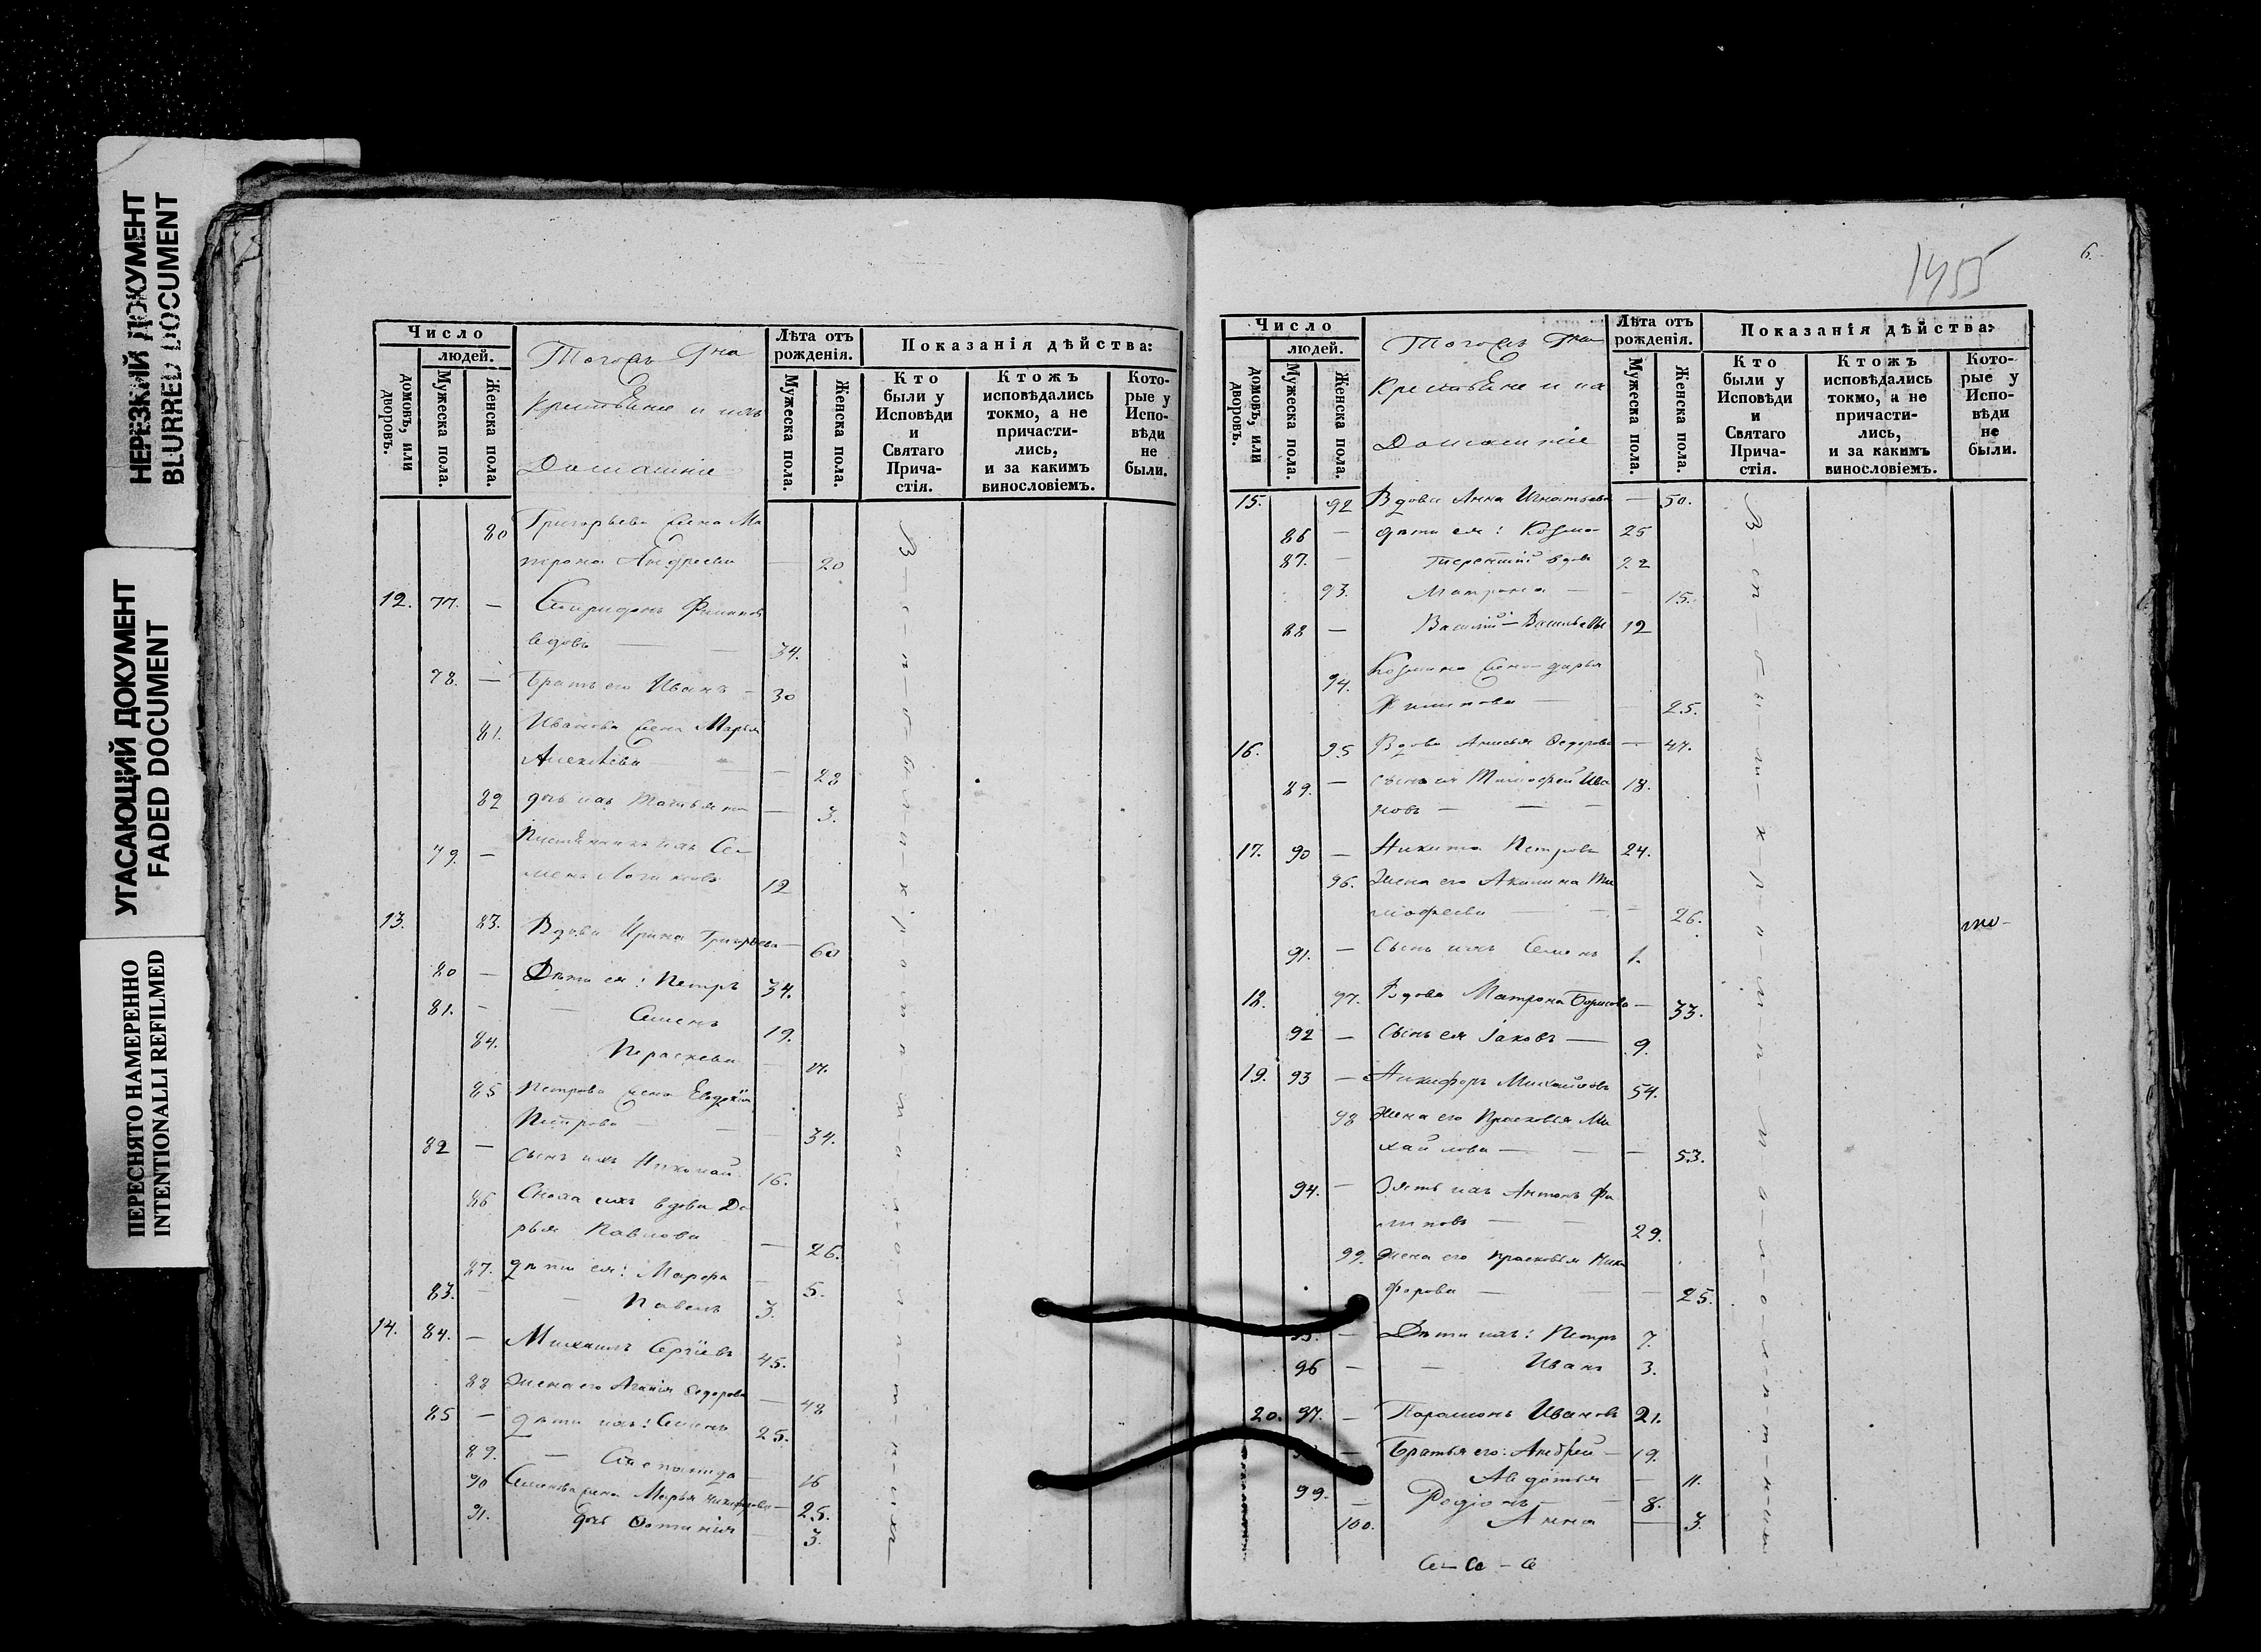 НЕРЕЗКИЙ ДОКУМЕНТ
BLURRED DOCUMENT
УГАСАЮЩИЙ ДОКУМЕНТ
FADED DOCUMENT
ПЕРЕСНЯТО НАМЕРЕННО
INTENTIONALLI REFILMED
Число
людей.
домовъ, или дворовъ.
Мужеска пола.
Женска пола.
Тогожъ Гна
Крестьяне и ихъ
Домашніе
Лѣта отъ рожденія.
Мужеска пола.
Женска пола.
Показанія дѣйства:
Кто были у Исповѣди и Святаго Прича-стія.
Ктожъ исповѣдались токмо, а не причасти-лись, и за какимъ винословіемъ.
Кото-рые у Испо-вѣди не были.
80 Григорьева жена Ма
трона Андреева — 20
12. 77. — Спиридонъ Филиповъ
вдовъ — — 34.
78. — Братъ его Иванъ — 30
81. Иванова жена Марья
Алексѣева — — 28
82 дочь ихъ Татьяна — 3.
79. — Племянникъ ихъ Се-
менъ Логиновъ 12
13. 83. Вдова Ирина Григорьева — 60
80 — Дѣти ея: Петръ 34.
81. — — Семенъ 19.
84. Параскева — 17.
85 Петрова жена Евдокія
Петрова — — — 34.
82 — Сынъ ихъ Николай 16.
86 Сноха ихъ вдова Да
рья Павлова — 26.
87. дѣти ея: Марфа — 5.
83. — — Павелъ 3.
14. 84. — Михаилъ Сергіевъ 45.
88 Жена его Агафія Ѳедорова — 48
85 — дѣти ихъ: Семенъ 25.
89. — Степанида — 16
90 Семенова жена Марья Никифорова — 25.
91. дочь Фотинія — 3.
1455
6.
Число
людей.
домовъ, или дворовъ.
Мужеска пола.
Женска пола.
Тогожъ Гна
Крестьяне и их
Домашніе
Лѣта отъ рожденія.
Мужеска пола.
Женска пола.
Показанія дѣйства:
Кто были у Исповѣди и Святаго Прича-стія.
Ктожъ исповѣдались токмо, а не причасти-лись, и за какимъ винословіемъ.
Кото-рые у Испо-вѣди не были.
15. 92 Вдова Анна Игнатьева — 50.
86 — дѣти ея: Козма — 25
87. — Терентій вдов 22
93. Матрона — — 15.
88 — Василій — Васильевы 12
94. Козмина жена дарья
Филипова — 25.
16. 95 Вдова Анисья Ѳедорова — 47.
89. — Сынъ ея Тимофей Ива
новъ — — — 18.
17. 90 — Никита Петровъ 24.
96. Жена его Акилина Ти
мофеева — — — 26.
91. — Сынъ ихъ Семенъ 1.
18. 97. Вдова Матрона Борисова — 33.
92 — Сынъ ея Іаковъ — 9.
19. 93 — Никифоръ Михайловъ 54.
98 Жена его Прасковья Ми
хайлова — — — 53.
94. — Зять ихъ Антонъ Фи
липовъ — — 29.
99. Жена его Прасковья Ники
форова — — — 25.
95. — Дѣти ихъ: Петръ 7.
96 — — Иванъ 3.
20. 97. — Парамонъ Ивановъ 21.
— Братья его: Андрей — 19.
Авдотья — 11.
99. — Родіонъ — — 8.
100. Анна — 3.